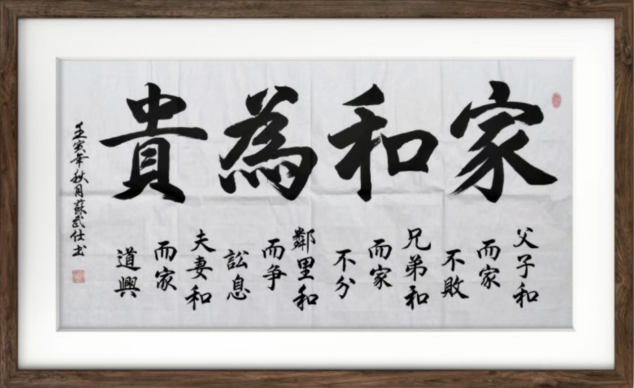 家和為貴
父子和
而家
不敗
兄弟和
而家
不分
鄰里和
而爭
訟息
夫妻和
而家
道興
壬寅年秋月蘇武仕书